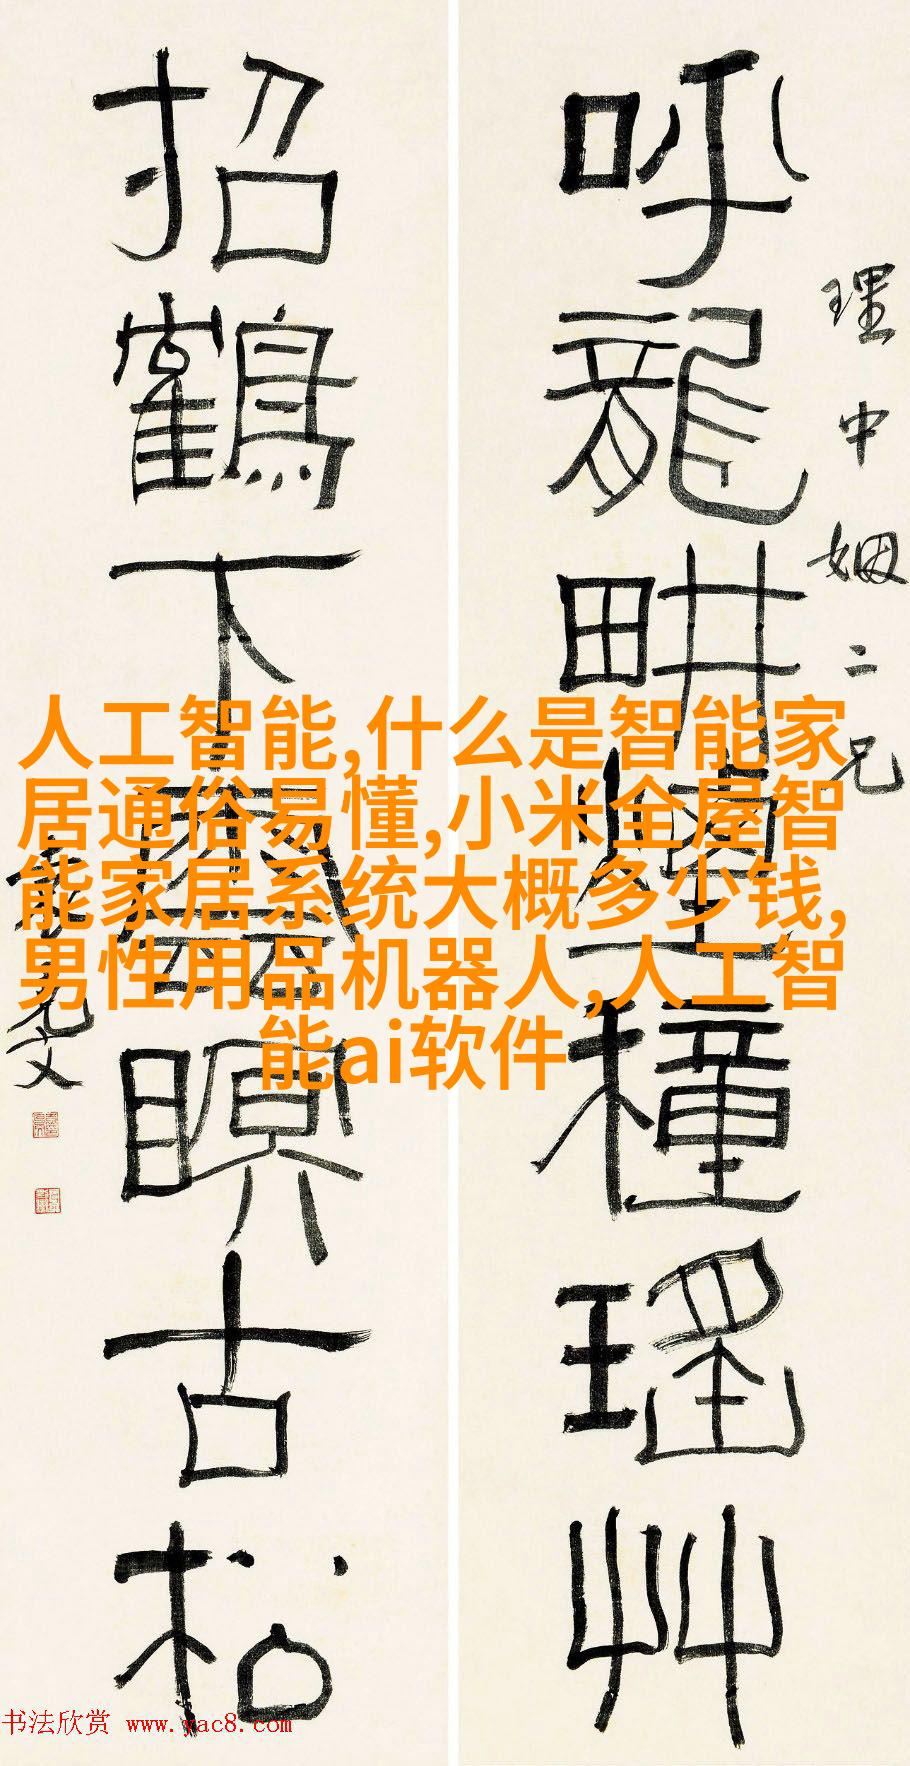 理中姻二兄
呼龍畊煙種瑤艸
招鶴下雲瞑古松
克文
人工智能,什么是智能家
居通俗易懂,小米全屋智
能家居系统大概多少钱,
男性用品机器人,人工智
能ai软件
书法欣赏 www.yac8.com